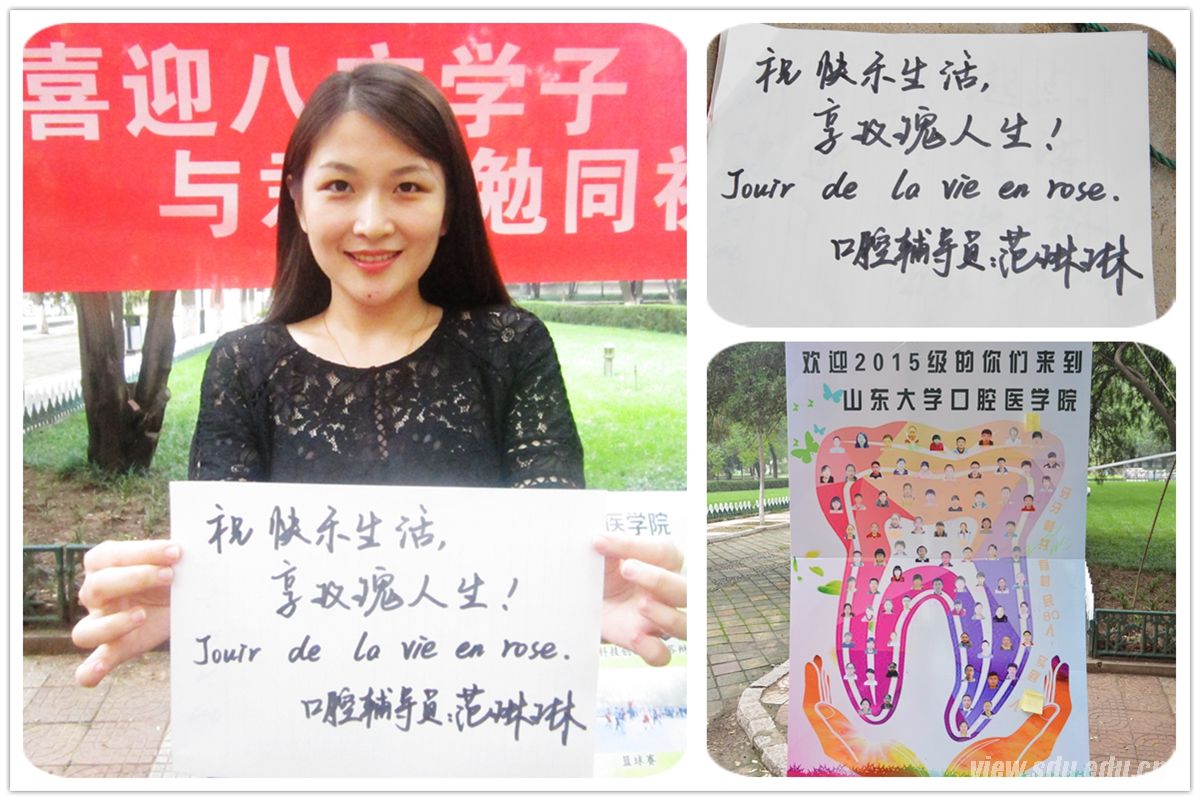 喜迎八方学子
与 勉同
祝快乐生活,
享玫瑰人生!
Jouir de la vie en rose.
口腔辅导员:范琳琳
医学院
篮球赛
祝快乐生活,
享玫瑰人生!
Jouir de la vie en rose.
口腔辅导员:范琳琳
欢迎2015级的你们来到
山东大学口腔医学院
view.sdu.edu.cn